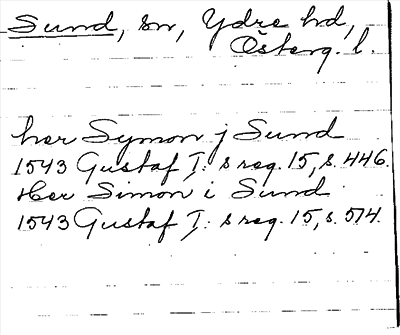 Sund, sn, Ydre hd,
Österg. l.
her Symon j Sund
1543 Gustaf I: s reg. 15, s. 446.
Her Simon i Sund
1543 Gustaf I: s reg. 15, s. 514.